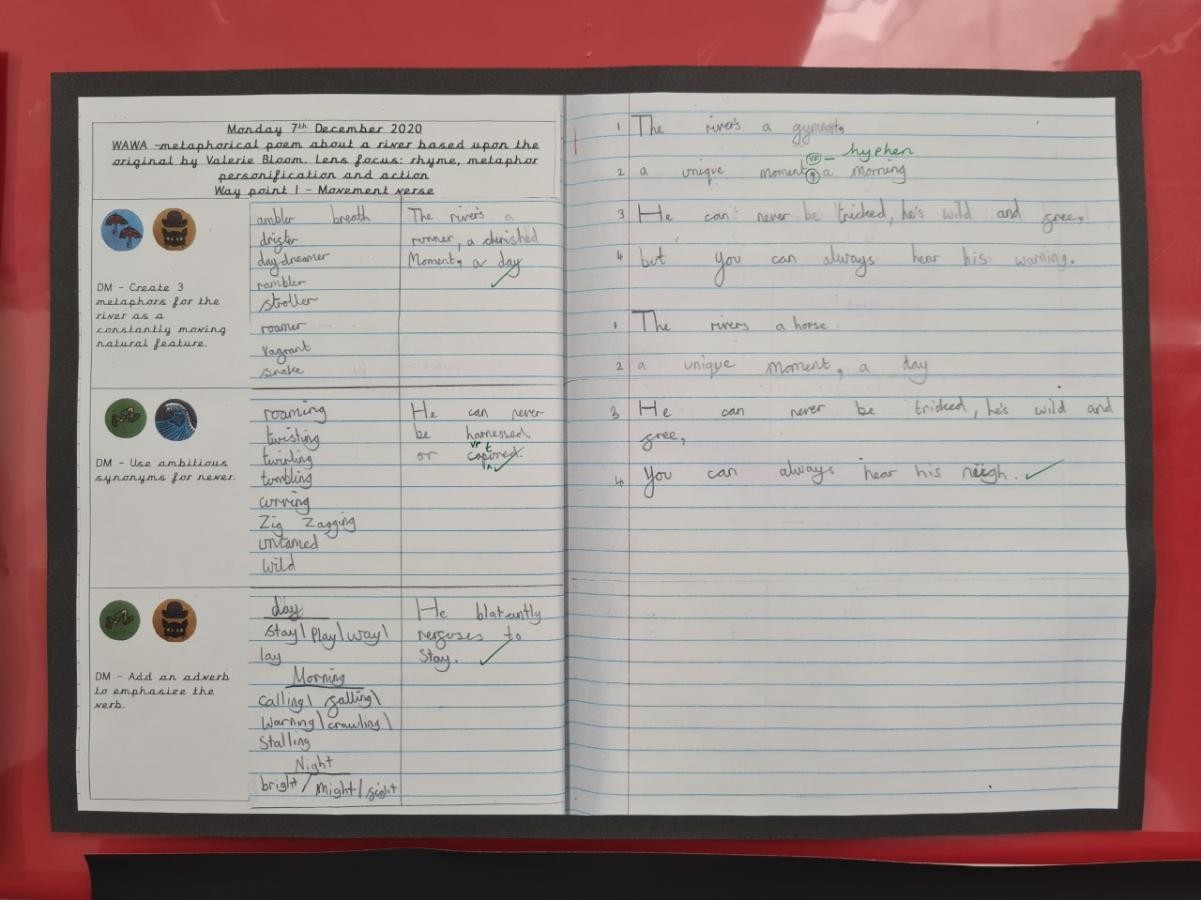 Monday 7th December 2020
WAWA -metaphorical poem about a river based upon the
original by Valerie Bloom. Lens focus: rhyme, metaphor
personification and action
Way point 1 - Movement verse
DM - Create 3
metaphors for the
river as a
constantly moving
natural feature.
ambler breath
drifter
day-dreamer
rambler
stroller
roamer
vagrant
snake
The river's a
runner, a cherished
Moment, a day
DM - Use ambitious
synonyms for never.
roaming
twisting
twirling
tumbling
curving
Zig Zagging
untamed
wild
He can never
be harnessed
or
DM - Add an adverb
to emphasize the
verb.
day
Stay\ Play\ way\
lay
Morning
calling\ falling\
Warning\ crawling\
Stalling
Night
bright/ Might/ sight
He blatantly
refuses to
Stay.
1 The river's a gymnast,
hyphen
2 a unique moment, a morning
3 He can never be tricked, he's wild and free,
4 but you can always hear his warning.
1 The rivers a horse
2 a unique moment, a day
3 He can never be tricked, he's wild and
free,
4 You can always hear his neigh.